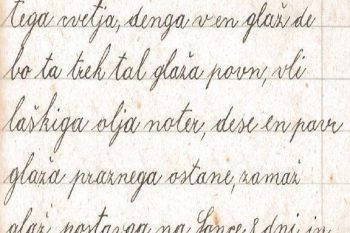 tega cvetja, denga v en glaž de
bo ta treh tal glaža povn, vli
laškiga olja noter, dese en pavr
glaža praznega ostane, zamaž
glaž, postavga na sonce 8 dni in